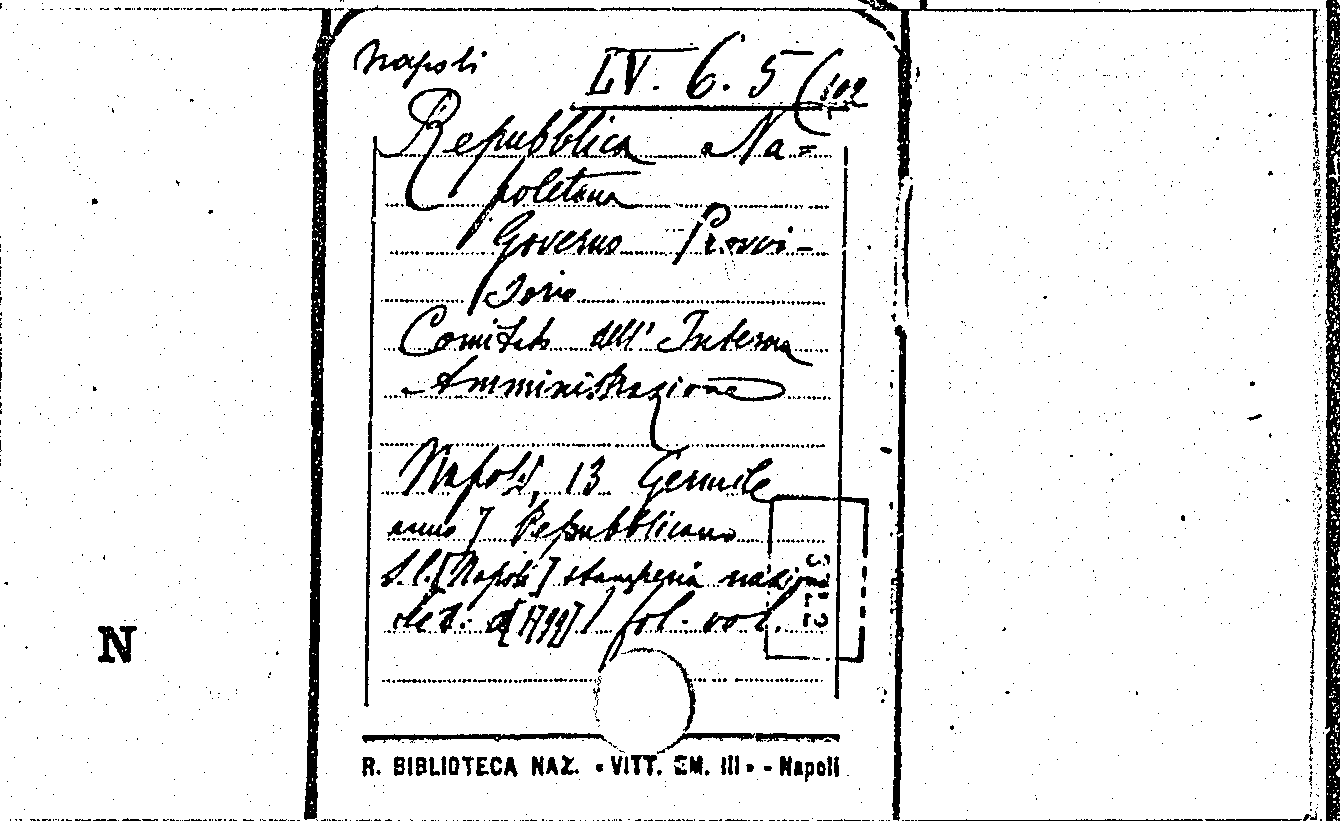 Napoli
LV. 6. 5 (102
Repubblica Na=
poletana
Governo Provvi-
sorio
Comitato dell' Interna
Amministrazione
Napoli, 13 Germile
anno 7 Repubblicano
S. l. [Napoli] stamperia naziona
le s. d [1799] / fol. vol.
N
R. BIBLIOTECA NAZ. «VITT. EM. III» - Napoli